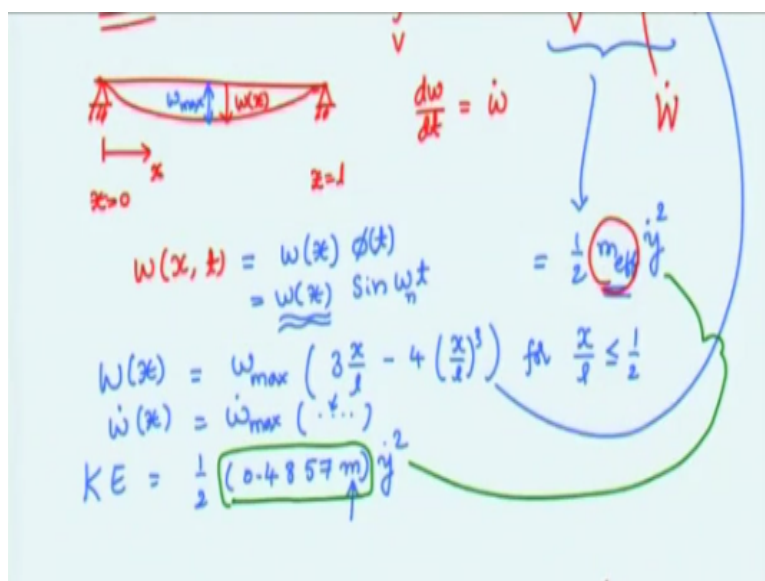 v
v
w_max w(x)
dw/dt = ẇ
Ẇ
x
x=0
x=l
w(x, t) = w(x) φ(t)
= w(x) Sin ω_n t
= 1/2 m_eff ẏ²
W(x) = w_max ( 3 x/l - 4 (x/l)³ ) for x/l ≤ 1/2
ẇ(x) = ẇ_max ( ..... )
KE = 1/2 (0.4857 m) ẏ²